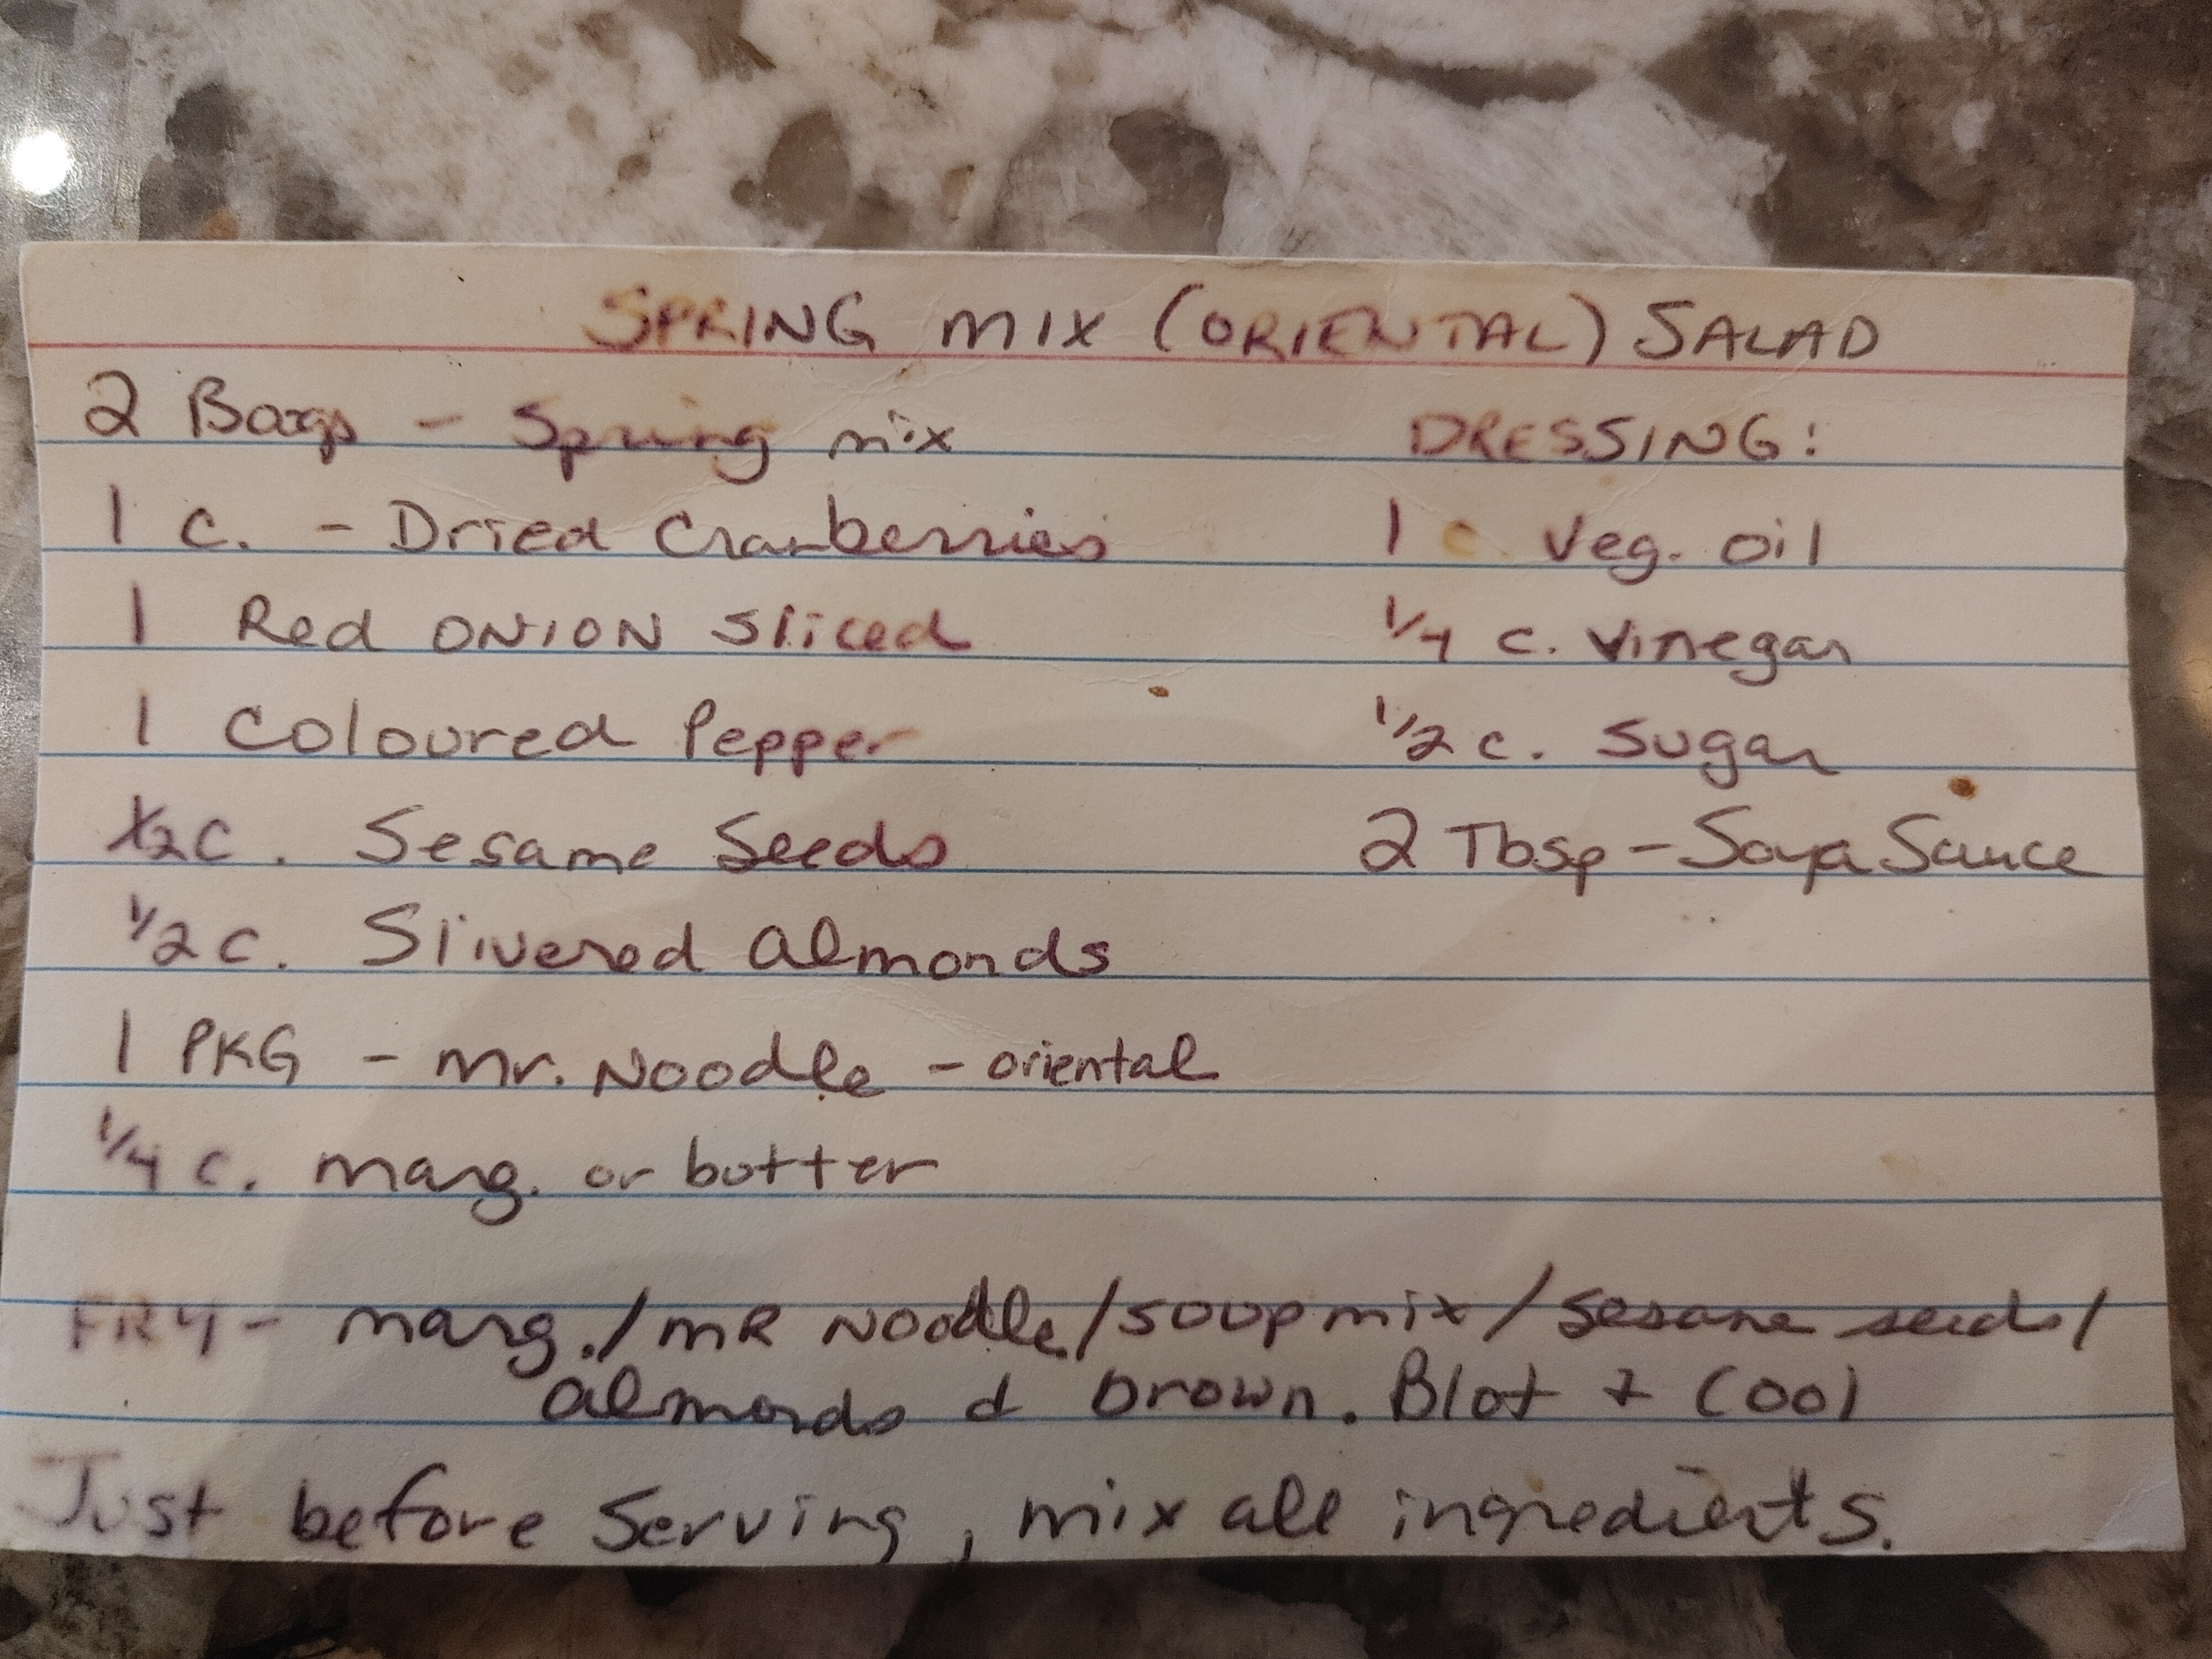 SPRING MIX (ORIENTAL) SALAD
2 Bags - Spring mix
1 c. - Dried Cranberries
1 Red ONION Sliced
1 Coloured Pepper
1/2 c. Sesame Seeds
1/2 c. Slivered almonds
1 PKG - Mr. Noodle - oriental
1/4 c. marg. or butter
DRESSING:
1 c. Veg. oil
1/4 c. Vinegar
1/2 c. Sugar
2 Tbsp - Soya Sauce
FRY - marg./MR Noodle/soup mix/sesame seeds/
almonds & brown. Blot + Cool
Just before Serving, mix all ingredients.